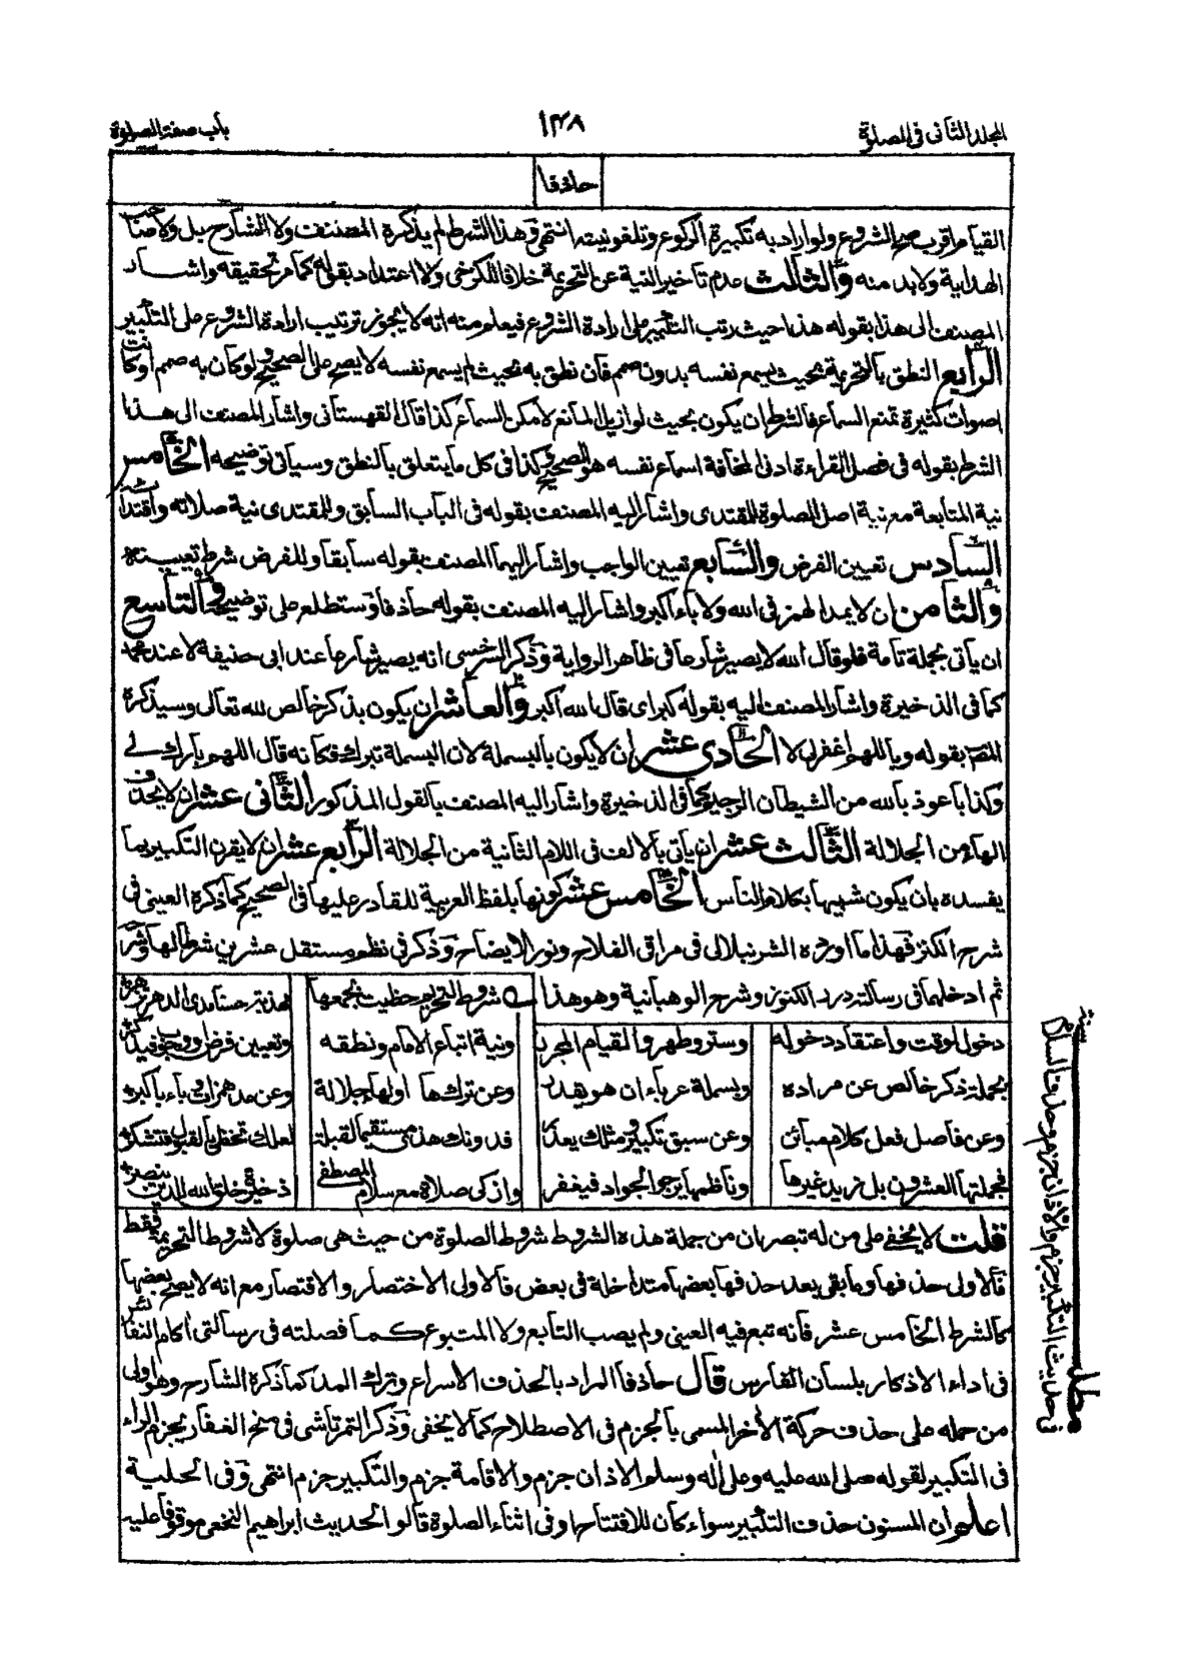 المجلد الثاني في الصلوة
١٣٨
باب صفة الصلوة
حاذفا
القيام اقرب صح الشروع ولو اراد به تكبيرة الركوع وتلغو نيته انتهى وهذا الشرط لم يذكره المصنف ولا الشارح بل ولا صاحب
الهداية ولا بد منه والثالث عدم تاخير النية عن التحريمة خلافا للكرخي ولا اعتداد بقوله كما مر تحقيقه واشار
المصنف الى هذا بقوله هذا حيث رتب التكبير على ارادة الشروع فيعلم منه انه لا يجوز ترتيب ارادة الشروع على التكبير
الرابع النطق بالتحريمة بحيث يسمع نفسه بدون صمم فان نطق به بحيث لم يسمع نفسه لا يصح على الصحيح ولو كان به صمم او كانت
اصوات كثيرة تمنع السماع فالشرط ان يكون بحيث لو ازيل المانع لامكن السماع كذا قال القهستاني واشار المصنف الى هذا
الشرط بقوله في فصل القراءة ادنى المخافة اسماع نفسه هو الصحيح وكذا في كل ما يتعلق بالنطق وسياتي توضيحه الخامس
نية المتابعة مع نية اصل الصلوة للمقتدى واشار اليه المصنف بقوله في الباب السابق وللمقتدى نية صلاته واقتدائه
السادس تعيين الفرض والسابع تعيين الواجب واشار اليهما المصنف بقوله سابقا وللفرض شرط تعيينه
والثامن ان لا يمد الهمز في الله ولا باء اكبر واشار اليه المصنف بقوله حاذفا وستطلع على توضيحه والتاسع
ان ياتى بجملة تامة فلو قال الله لا يصير شارعا في ظاهر الرواية وذكر السرخسى انه يصير شارعا عند ابى حنيفة لا عند محمد
كما في الذخيرة واشار المصنف اليه بقوله كبر اى قال الله اكبر والعاشر ان يكون بذكر خالص لله تعالى وسيذكره
المصـ بقوله وباللهم اغفر لى لا الحادى عشر ان لا يكون بالبسملة لان البسملة تبرك فكانه قال اللهم بارك لى
وكذا باعوذ بالله من الشيطان الرجيم كما في الذخيرة واشار اليه المصنف بالقول المذكور الثانى عشر ان لا يحذف
الهاء من الجلالة الثالث عشر ان ياتى بالالف في اللام الثانية من الجلالة الرابع عشر ان لا يقرن التكبير بما
يفسده بان يكون شبيها بكلام الناس الخامس عشر كونها بلفظ العربية للقادر عليها في الصحيح كما ذكره العينى في
شرح الكنز فهذا ما اورده الشرنبلالى في مراقى الفلاح ونور الايضاح وذكر في نظم مستقل عشرين شرطا لها وشرحها
ثم ادخلها في رسالته درر الكنوز وشرح الوهبانية وهو هذا شروط التحريم حظيت بجمعها مهذبة حسنا مدى الدهر تزهر
دخول لوقت واعتقاد دخوله وستر وطهر والقيام المحرر ونية اتباع الامام ونطقه وتعيين فرض او وجوب فيذكر
بجملة ذكر خالص عن مراده وبسملة عرباء ان هو يقدر وعن ترك هاء او لهاء جلالة وعن مد همزات وباء باكبر
وعن فاصل فعل كلام مباين وعن سبق تكبير ومثلك يعذر فدونك هذى مستقيما لقبلة لعلك تحظى بالقبول فتشكر
فجملتها العشرون بل زيد غيرها وناظمها يرجو الجواد فيغفر وازكى صلاة مع سلام المصطفى ذخيرة خلق الله للدين ينصر
قلت لا يخفى على من له تبصر ان من جملة هذه الشروط شروط الصلوة من حيث هى صلوة لا شروط التحريمة فقط
فالاولى حذفها وما بقى بعد حذفها بعضها متداخلة في بعض فالاولى الاختصار والاقتصار مع انه لا يصح بعضها
كالشرط الخامس عشر فانه تبع فيه العينى ولم يصب التابع ولا المتبوع كما فصلته في رسالتى اكام النفائس
في اداء الاذكار بلسان الفارس قال حاذفا المراد بالحذف الاسراع وترك المد كما ذكره الشارح وهو اولى
من حمله على حذف حركة الأخر المسمى بالجزم في الاصطلاح كما لا يخفى وذكر التمرتاشى في منح الغفار يجزم الراء
في التكبير لقوله صلى الله عليه وعلى اله وسلم الاذان جزم والاقامة جزم والتكبير جزم انتهى وفى الحلية
اعلم ان المسنون حذف التكبير سواء كان للافتتاح او في اثناء الصلوة قالوا الحديث ابراهيم النخعى موقوفا عليه
مطلب
في حديث التكبير جزم والاذان جزم وحذف السلام سنة